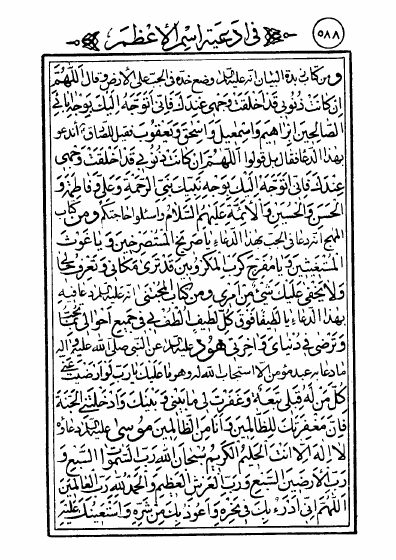 ٥٨٨ في ادعية اسم الاعظم
ومن كتاب بدة البيان انه عليه السلم وضع خده في الجب على الارض وقال اللهم
ان كانت ذنوبي قد اخلقت وجهي عندك فاني اتوجه اليك بوجه ابائي
الصالحين ابراهيم واسمعيل واسحق ويعقوب فقيل للصادق اندعو
بهذا الدعا فقال بل قولوا اللهم ان كانت ذنوبي قد اخلقت وجهي
عندك فاني اتوجه اليك بوجه نبيك نبي الرحمة وعلي وفاطمة و
الحسن والحسين والائمة عليهم السلام واسئلوا حاجتكم ومن كتاب
المهج انه دعا في الجب بهذا الدعاء يا صريخ المستصرخين ويا غوث
المستغيثين ويا مفرج كرب المكروبين قد ترى مكاني وتعرف حالي
ولا يخفى عليك شئ من امري ومن كتاب المجتنى انه عليه السلم دعا فيه
بهذا الدعاء يا لطيفا فوق كل لطيف الطف بي في جميع احوالي كما تحب
وترضى في دنياي واخرتي هود عليه السلم عن النبي صلى الله عليه واله
ما دعا به عبد مؤمن الا استجاب الله له وهو ما عليك يا رب لو ارضيت عني
كل من له قبلي تبعة وغفرت لي ما بيني وبينك وادخلتني الجنة
فان مغفرتك للظالمين وانا من الظالمين موسى عليه السلم دعاؤه
لا اله الا انت الحليم الكريم سبحان الله رب السموات السبع و
رب الارضين السبع ورب العرش العظيم والحمد لله رب العالمين
اللهم اني ادرء بك في نحره واعوذ بك من شره واستعينك عليه